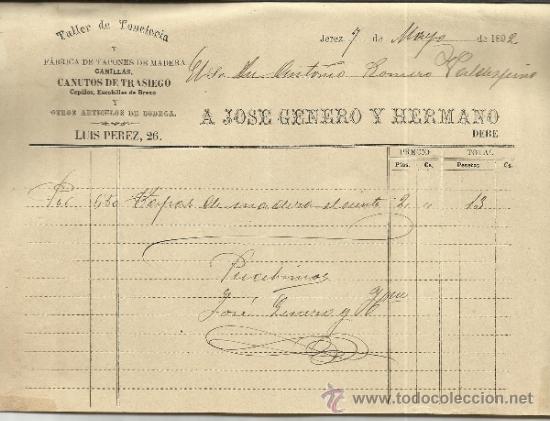 Taller de Toneleria
Y
FÁBRICA DE TAPONES DE MADERA
CANILLAS,
CANUTOS DE TRASIEGO
Cepillos, Escobillas de Brezo
Y
OTROS ARTICULOS DE BODEGA.
LUIS PEREZ, 26.
Jerez 7 de Mayo de 1892
Antonio Romero Valdespino
A JOSE GENERO Y HERMANO
DEBE
PRECIO TOTAL
Ptas. Cs. Pesetas Cs.
650 Tapas de madera el ciento 2 " 13
Recibimos
José Genero y Hno
todocoleccion.net